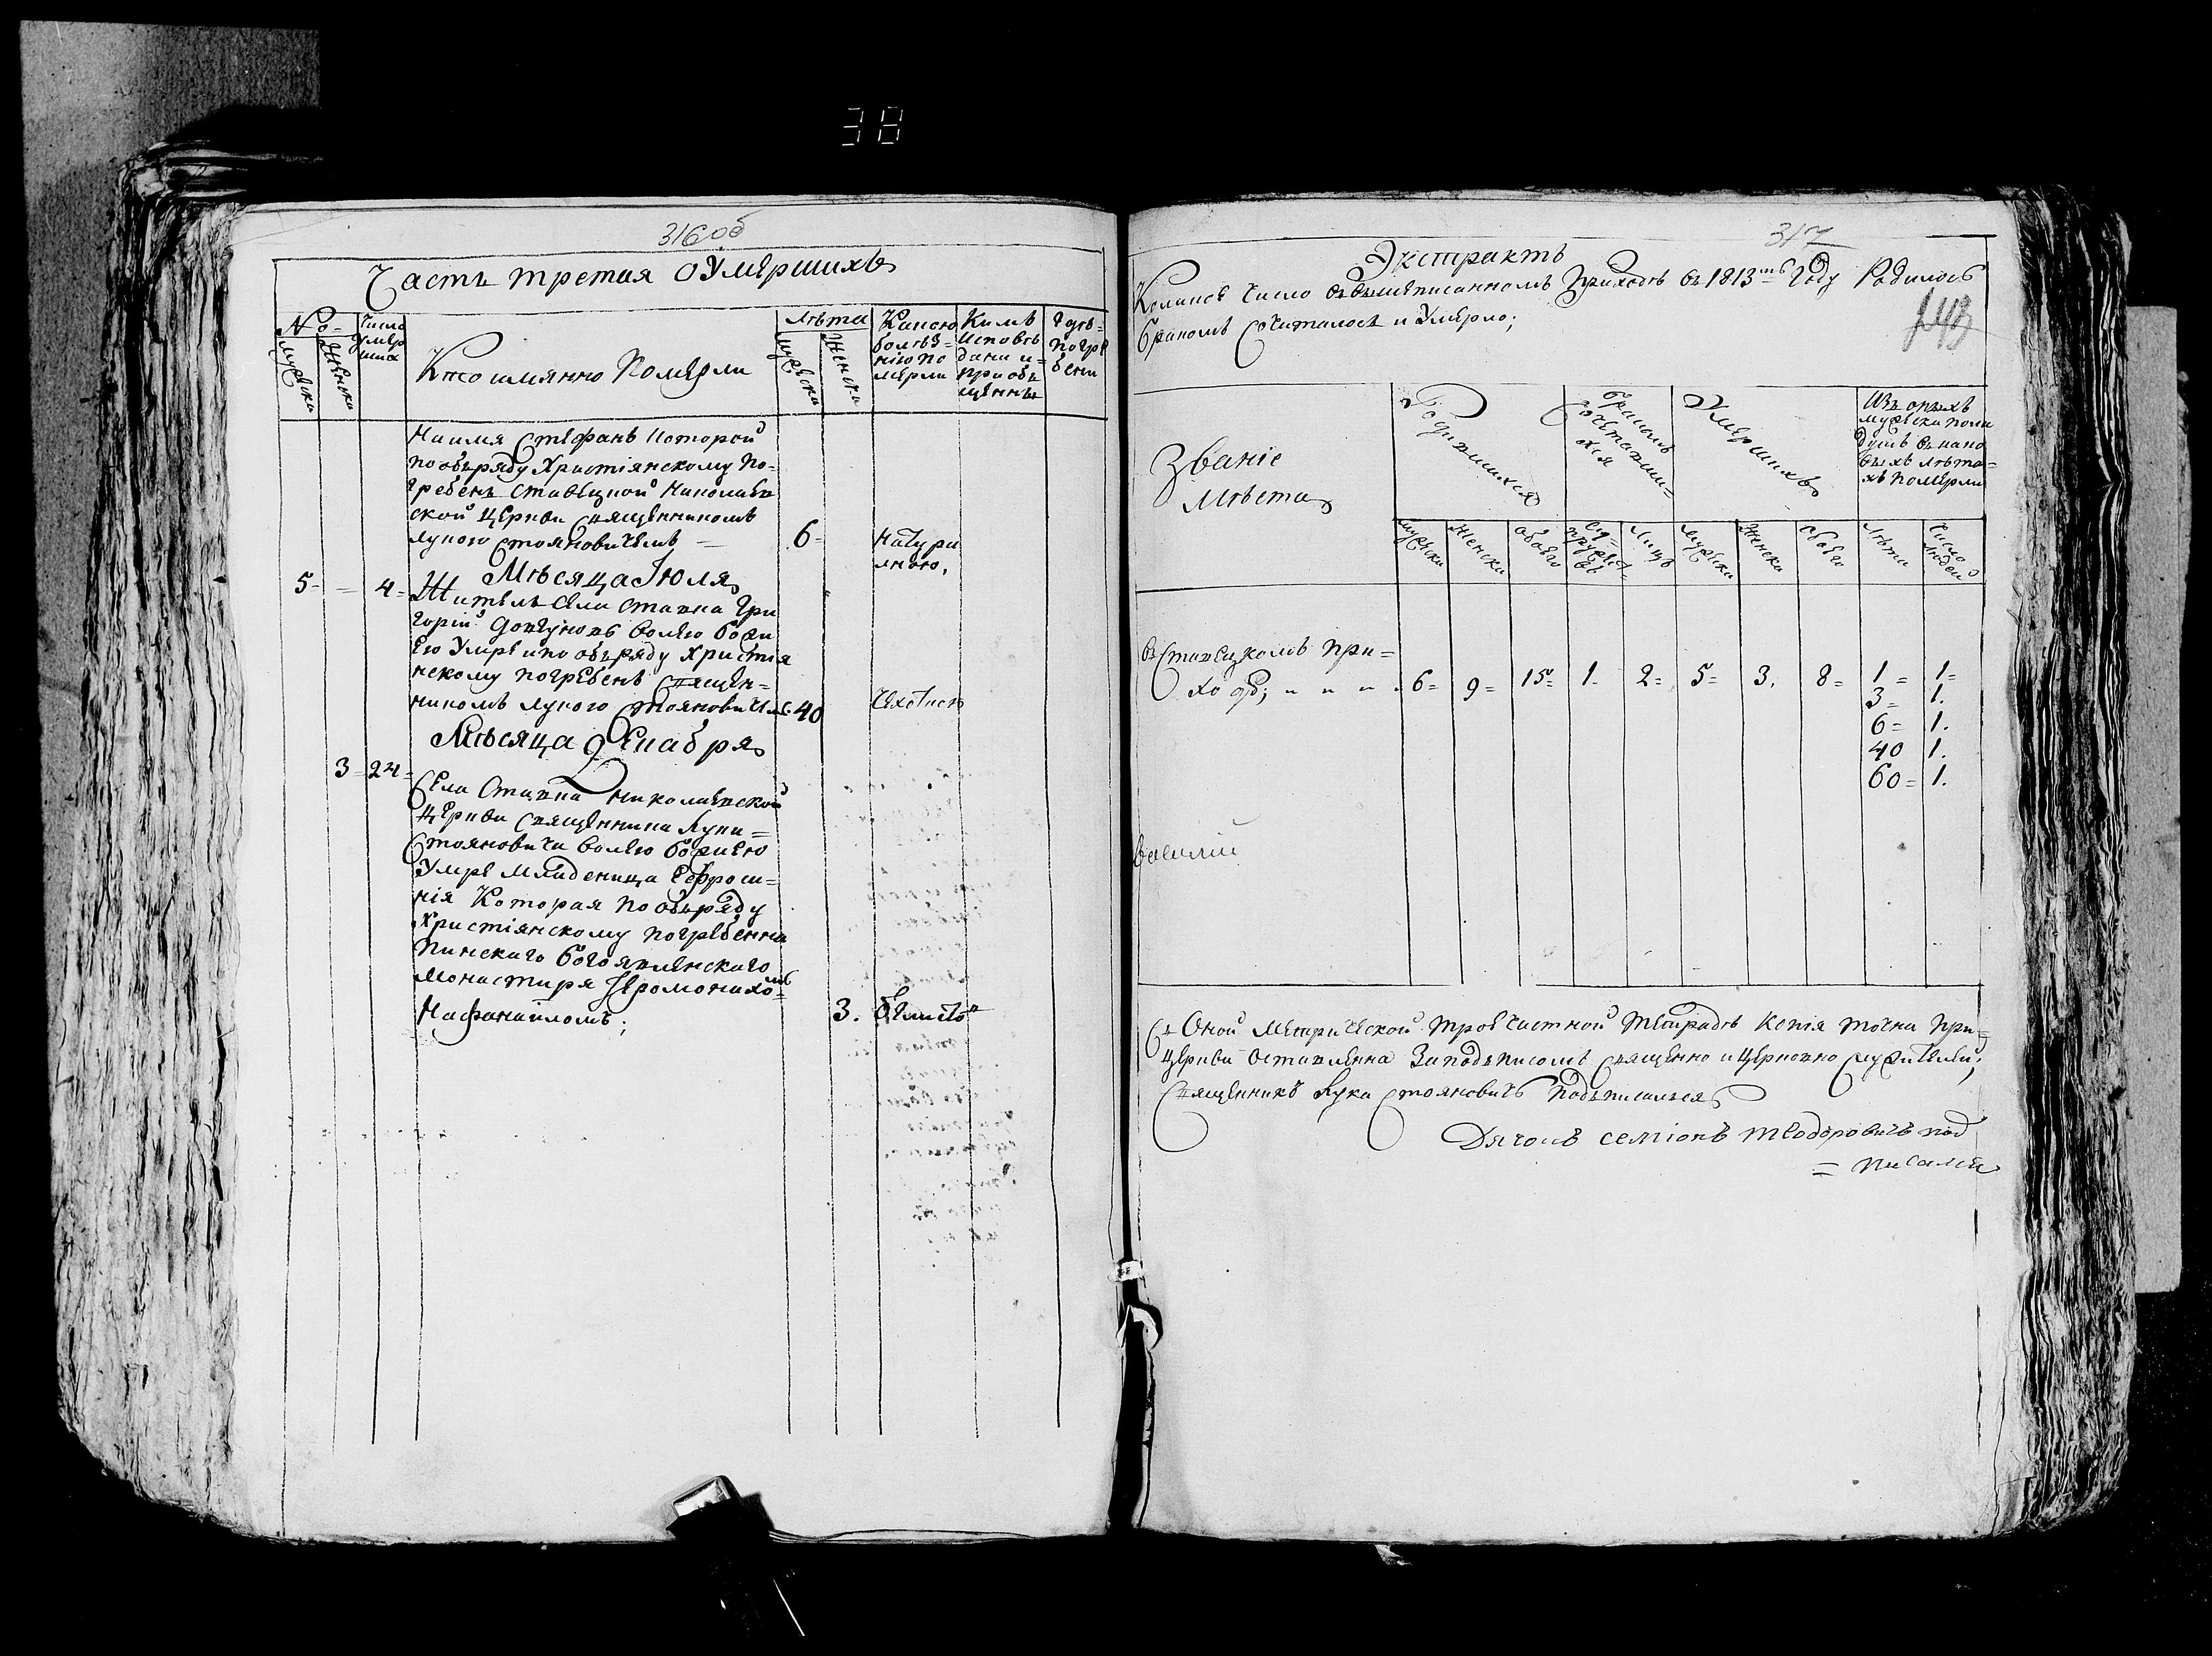 38
316об
Часть третая О Умершихъ
No
Мужеска
Женска
Число
умер
ших
Кто имянно Померли
Лѣта
Мужеска
Женска
Какою
болѣз=
нію по
мерли
Кимъ
Исповѣ
дани и=
приобъ
щенны
Гдѣ=
погре
бени
На имя Стефанъ Которой
по объряду Христіянскому По=
гребенъ ставецкой Николаев
ской церкви священникомъ
Лукою Стояновичемъ =
6=
натура
лною,
Мѣсяца Іюля
5= = 4= Житель Села ставка Гри
горій волею Божи
Ею Умре и по объряду Христія
нскому погребенъ Священ=
никомъ Лукою Стояновичемъ
40
Мѣсяца Декабря
3= 24=
Села Ставка Николаевской
Церкви Священника Луки=
Стояновича волею божиею
Умре Младеница Ефроси=
нія Которая по объряду
Христіянскому погребенна
Пинскаго богоявленскаго
Монастиря Іеромонахо=
мъ
Нафанаиломъ;
3.
317
Экстрактъ
Коликое Число въ вышеписанномъ Приходѣ въ 1813мъ Году Родилось
бракомъ Сочиталось и Умерло;
143
Званіе
мѣста
Родившихся
бракомъ
Сочетавши=
хся
Умершихъ
Изъ оныхъ
мужеска пола
душъ въ како
выхъ лѣта=
хъ померли
Мужеска
Женска
обоего
Су=
пруже=
ствъ
Лицъ
Мужеска
Женска
обоего
Лѣта
Число
людей
въ Ставецкомъ при=
ходѣ; " " " . 6= 9= 15= 1. 2= 5= 3. 8= 1= 1=
3= 1.
6= 1.
40 1.
60= 1.
василий
Съ Оной Метрической троечастной тетрадѣ Копія точна при=
церкви оставленна За подъписомъ священно и церковно служителей;
Священникъ Лука Стояновичъ Подъписался
Дячокъ семіонъ теодоровичъ под
= писался